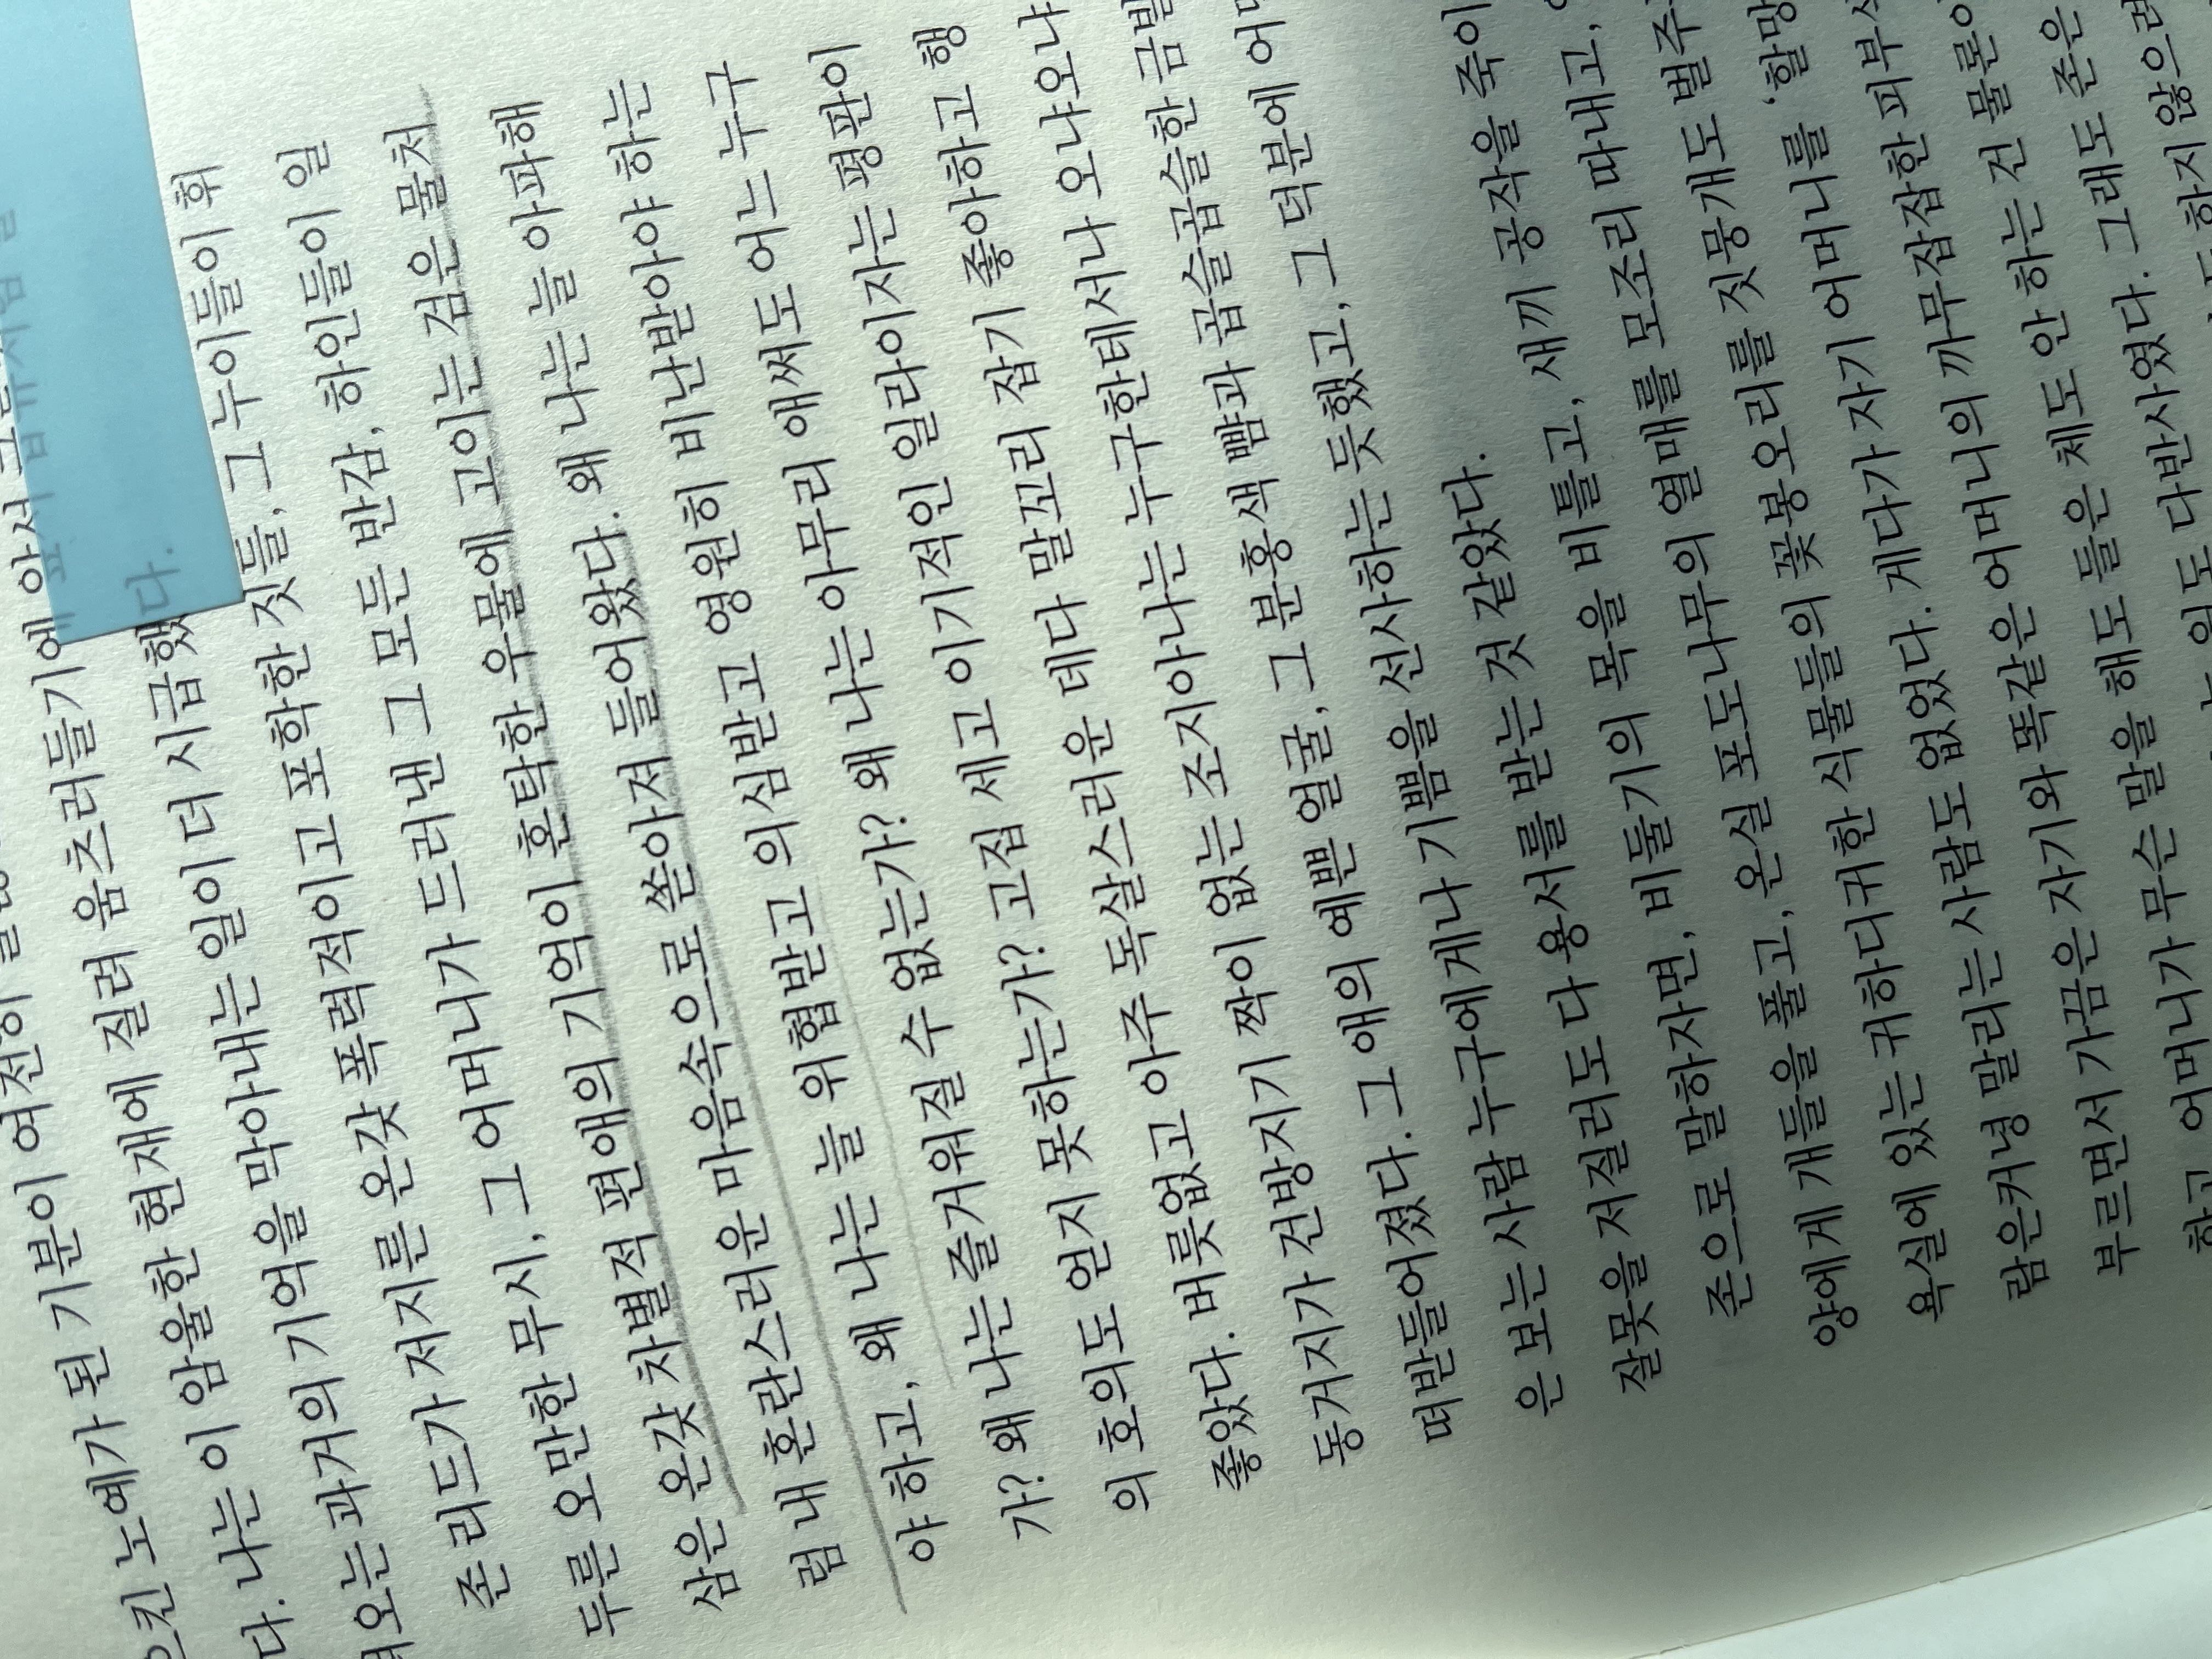 된 기분이 여전히
으킨 노예가 된 기분이 여전히
현재에 질려 움츠러들기에 앞서
다. 나는 이 암울한 현재에 질려 움츠러들기에
오는 과거의 기억을 막아내는 일이 더 시급했다.
존 리드가 저지른 온갖 폭력적이고 포학한 짓들, 그 누이들이 휘
두른 오만한 무시, 그 어머니가 드러낸 그 모든 반감, 하인들이 일
삼은 온갖 차별적 편애의 기억이 혼탁한 우물에 고이는 검은 물처
럼 내 혼란스러운 마음속으로 쏟아져 들어왔다. 왜 나는 늘 아파해
야 하고, 왜 나는 늘 위협받고 의심받고 영원히 비난받아야 하는
가? 왜 나는 즐거워질 수 없는가? 왜 나는 아무리 애써도 어느 누구
의 호의도 얻지 못하는가? 고집 세고 이기적인 일라이자는 평판이
좋았다. 버릇없고 아주 독살스러운 데다 말꼬리 잡기 좋아하고 행
동거지가 건방지기 짝이 없는 조지아나는 누구한테서나 오냐오냐
떠받들어졌다. 그 애의 예쁜 얼굴, 그 분홍색 뺨과 곱슬곱슬한 금발
은 보는 사람 누구에게나 기쁨을 선사하는 듯했고, 그 덕분에
잘못을 저질러도 다 용서를 받는 것 같았다.
존으로 말하자면, 비둘기의 목을 비틀고, 새끼 공작을 죽이
양에게 개들을 풀고, 온실 포도나무의 열매를 모조리 따내고,
욕실에 있는 귀하디귀한 식물들의 꽃봉오리를 짓뭉개도 벌주
람은커녕 말리는 사람도 없었다. 게다가 자기 어머니를 ‘할망
부르면서 가끔은 자기와 똑같은 어머니의 까무잡잡한 피부
하고, 어머니가 무슨 말을 해도 들은 체도 안 하는 건 물론이
일도 다반사였다. 그래도 존은
하지 않으려